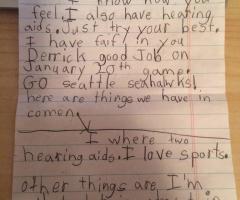 I know how you
feel I also have heating
aids. Just try your best.
I have fait in you
Derrick good Job on
January 20th game.
GO seattle seahawks!
here are things we have in
comen.
I where two
hearing aids. I love sports.
other things are I'm